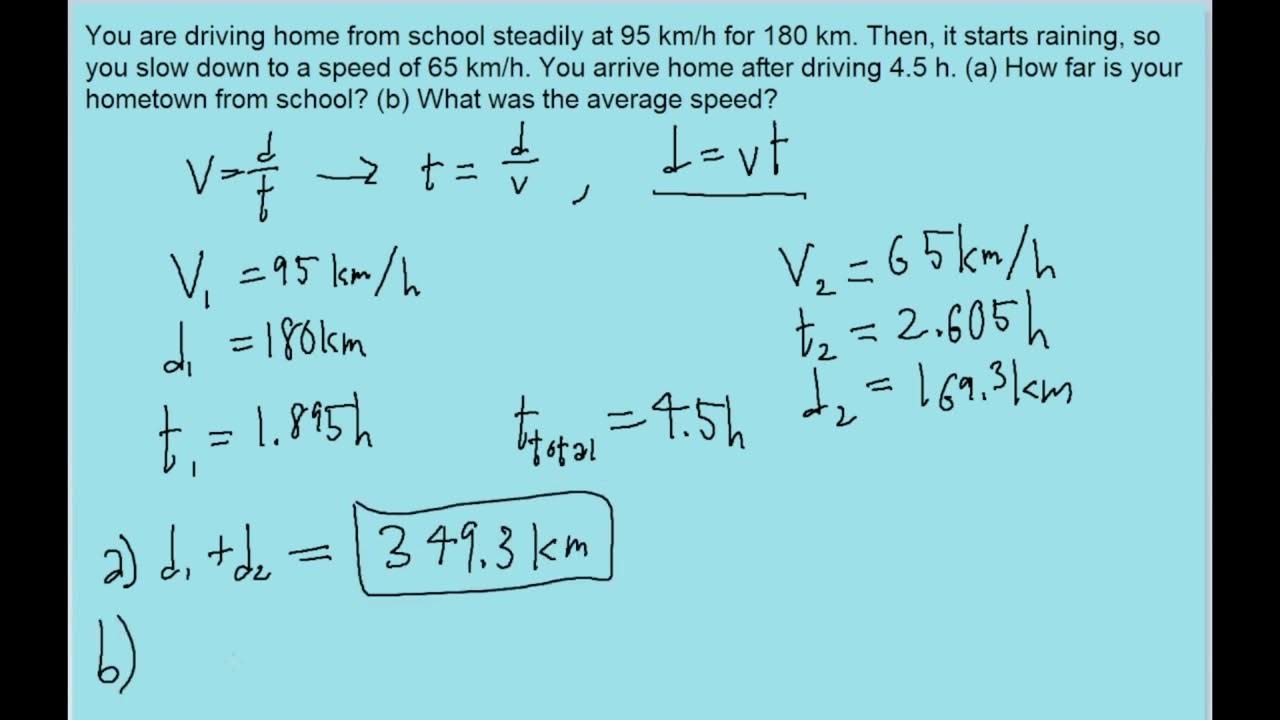 You are driving home from school steadily at 95 km/h for 180 km. Then, it starts raining, so
you slow down to a speed of 65 km/h. You arrive home after driving 4.5 h. (a) How far is your
hometown from school? (b) What was the average speed?
V = d/t → t = d/v , d = vt
V₁ = 95 km/h
V₂ = 65 km/h
d₁ = 180 km
t₂ = 2.605 h
t₁ = 1.895 h
t_total = 4.5 h
d₂ = 169.3 km
a) d₁ + d₂ = 349.3 km
b)